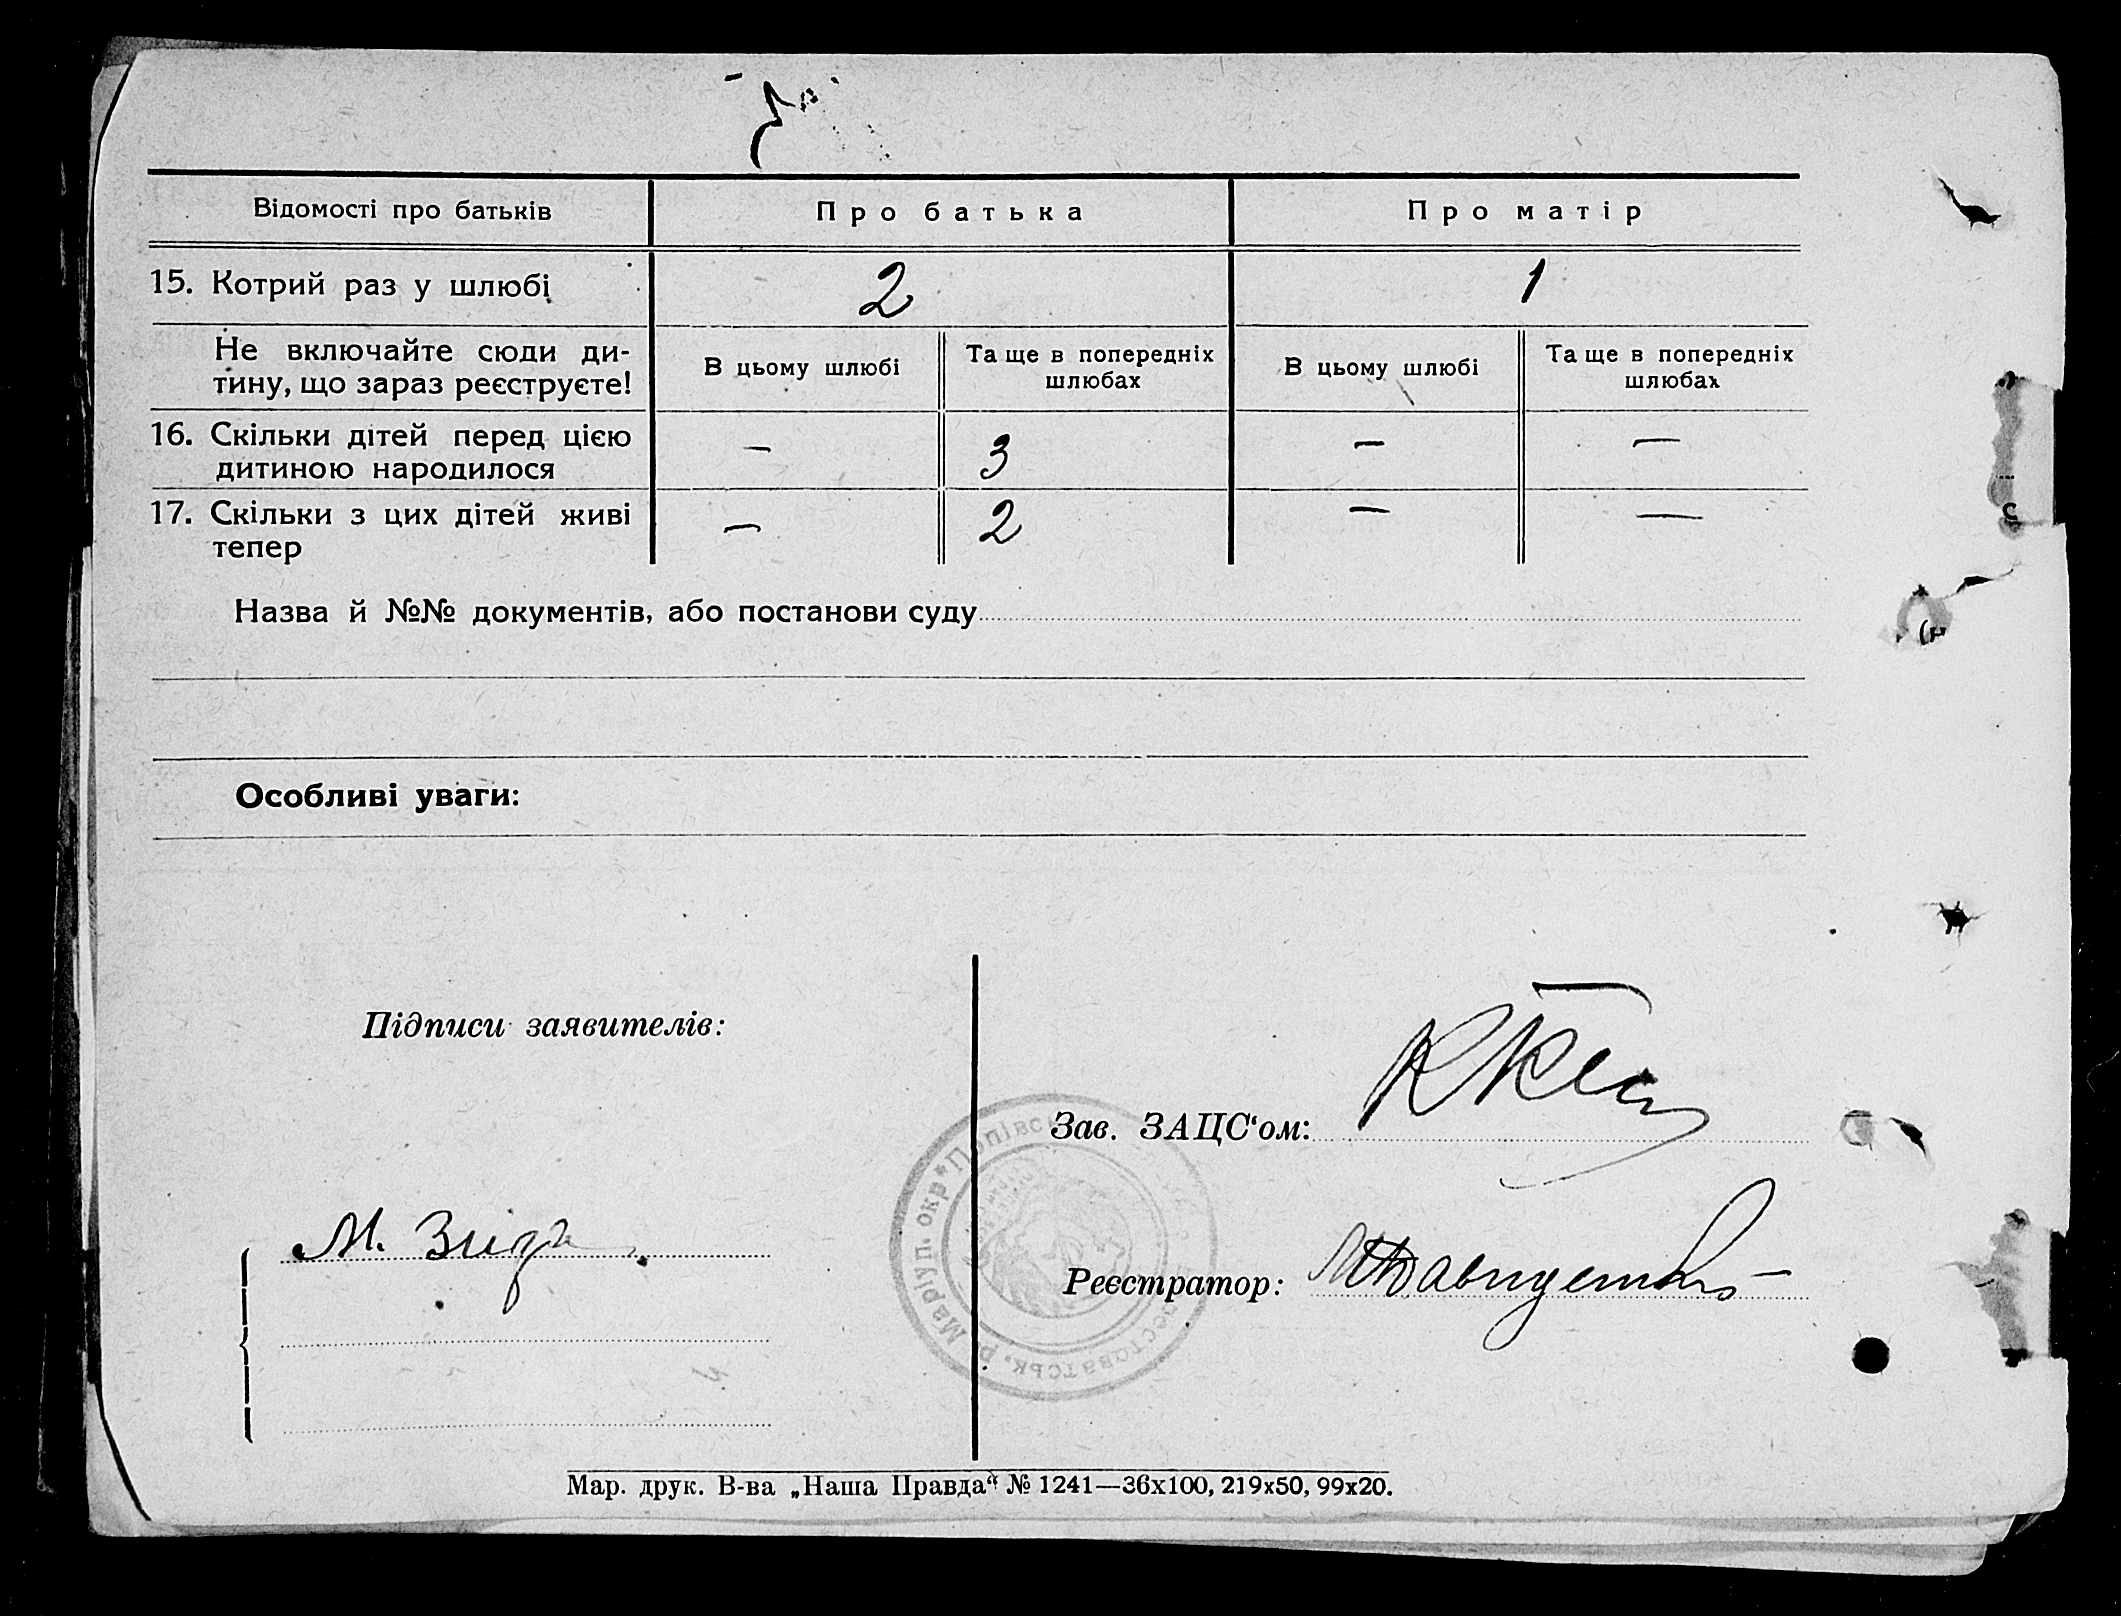 Відомості про батьків
Про батька
Про матір
15. Котрий раз у шлюбі
2
1
Не включайте сюди ди-
тину, що зараз реєструєте!
В цьому шлюбі
Та ще в попередніх
шлюбах
В цьому шлюбі
Та ще в попередніх
шлюбах
16. Скільки дітей перед цією
дитиною народилося
—
3
—
—
17. Скільки з цих дітей живі
тепер
—
2
—
—
Назва й №№ документів, або постанови суду
Особливі уваги:
Підписи заявителів:
Зав. ЗАЦС‘ом:
М.
Реєстратор:
Маріуп. окр*
Мар. друк. В-ва „Наша Правда“ № 1241—36х100, 219х50, 99х20.